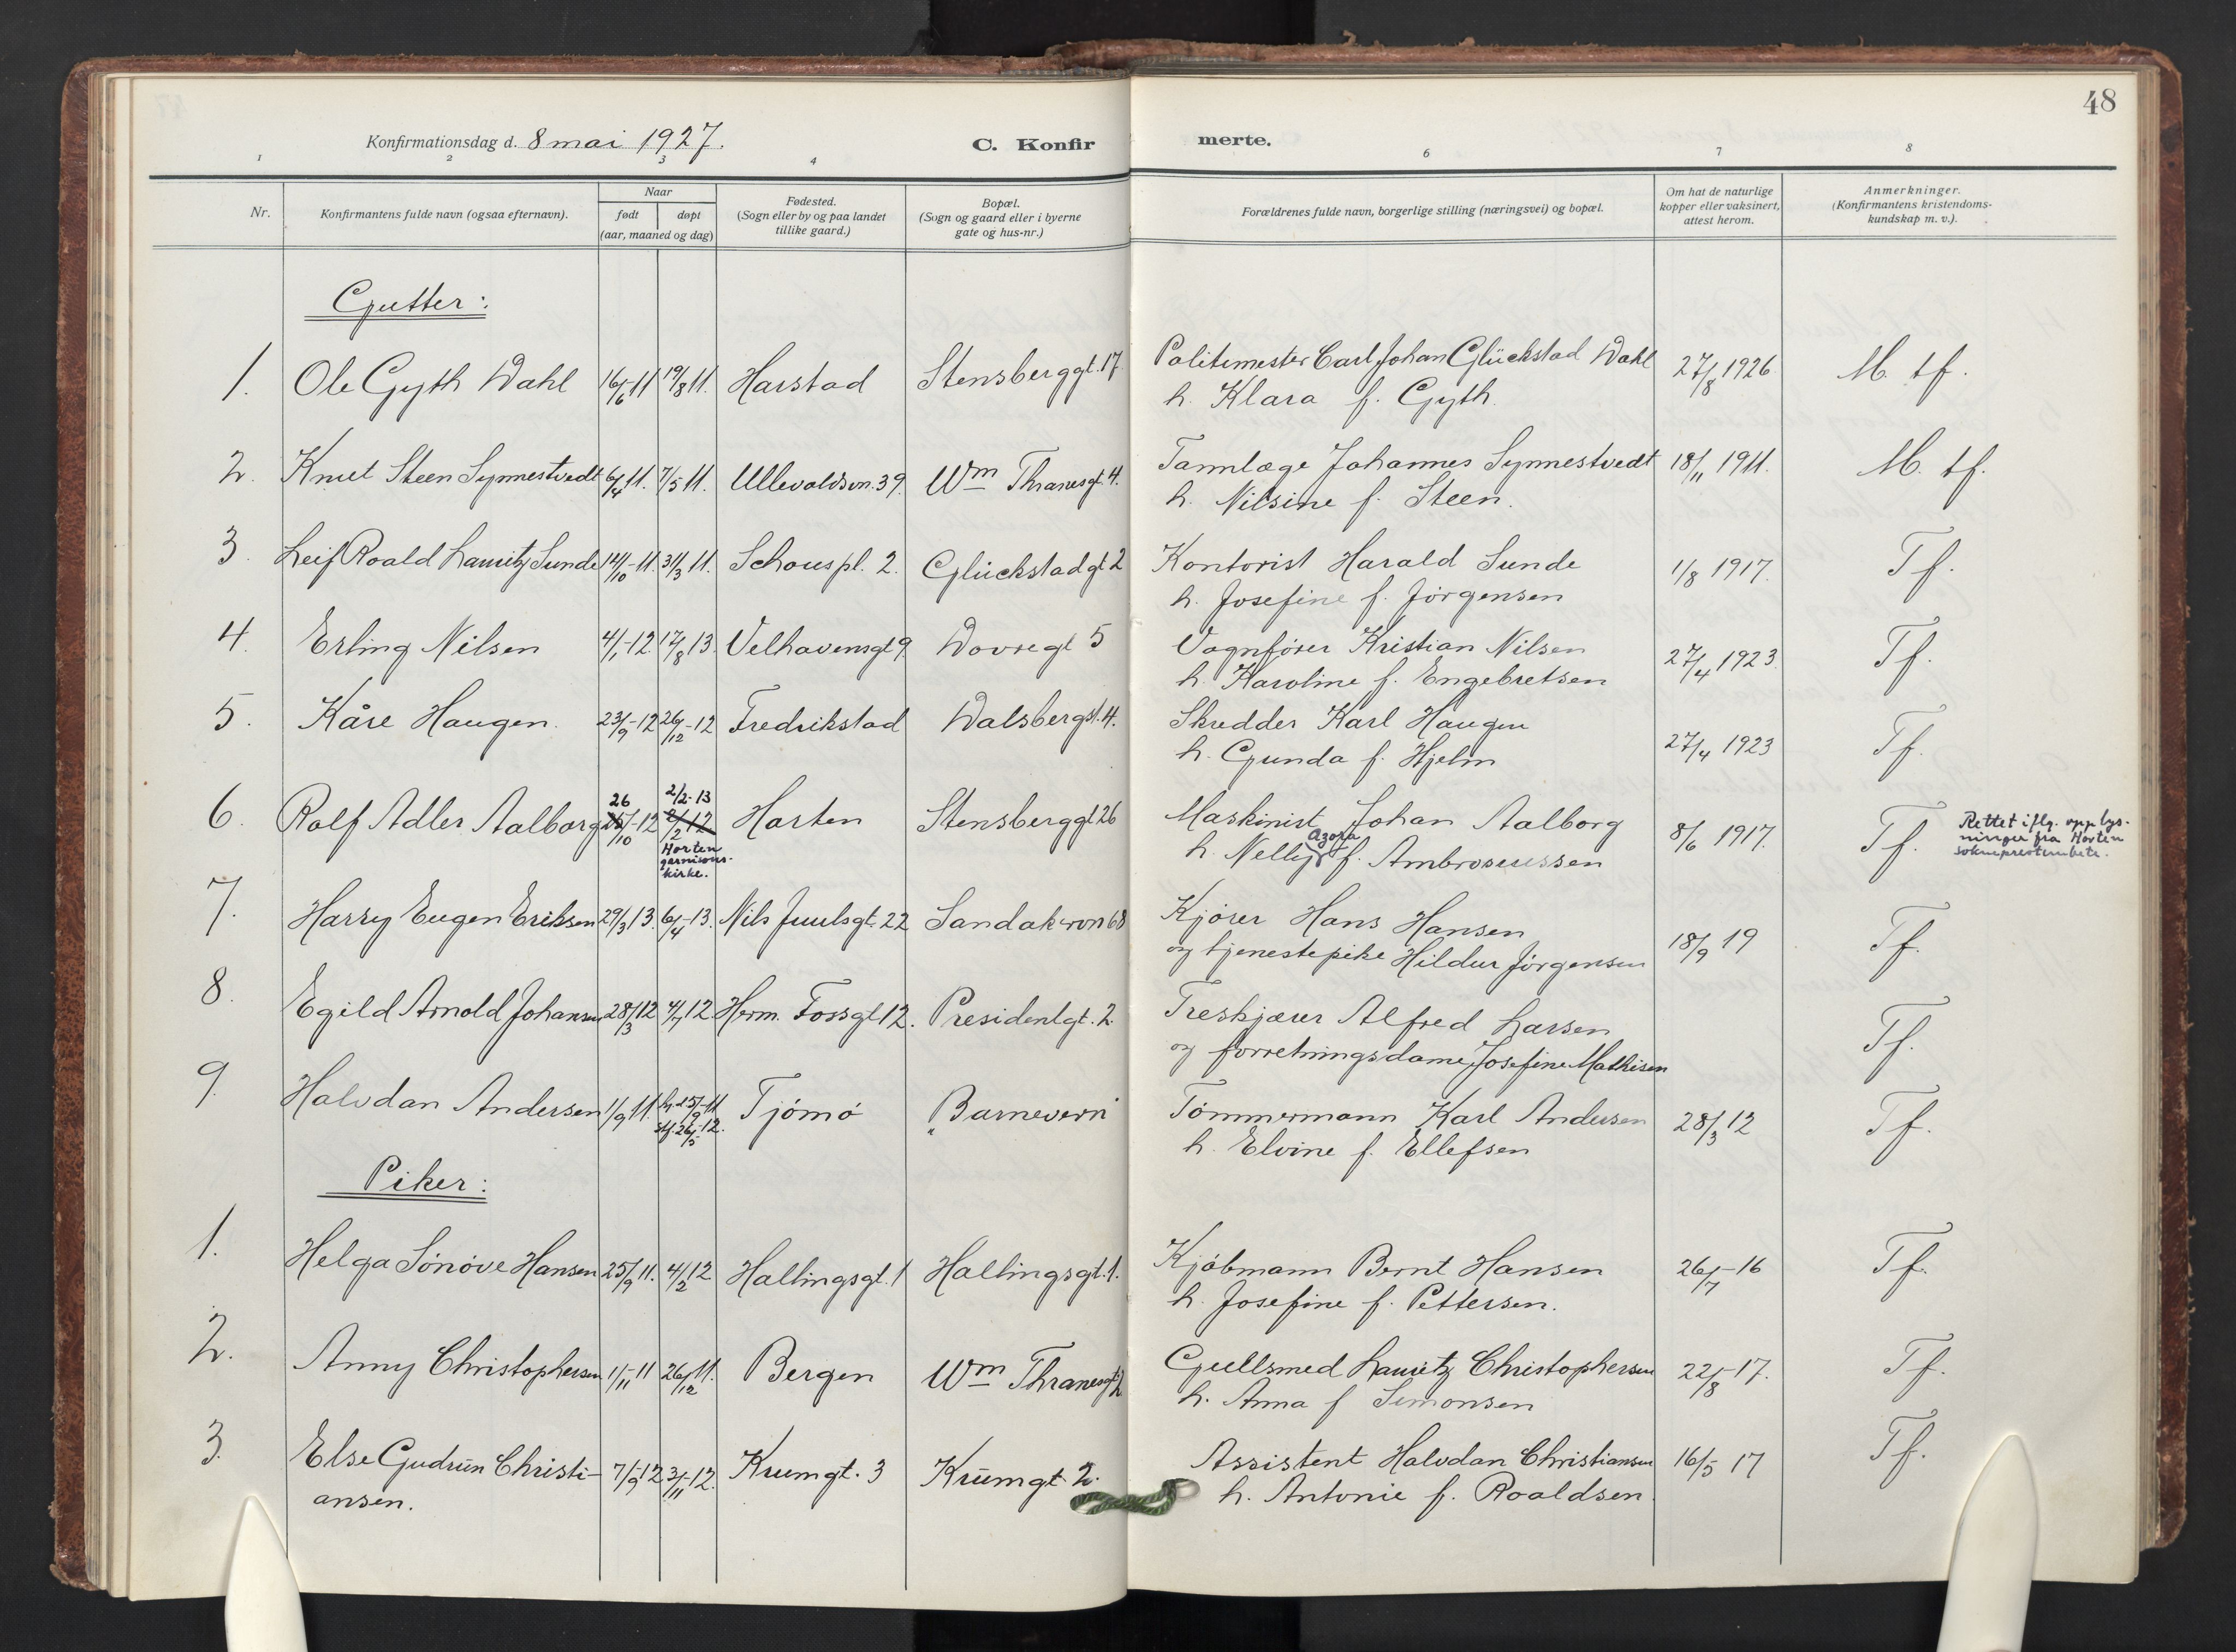 48
Konfirmationsdag d. 8 mai 1927.
C. Konfir merte.
1 2 3 4 6 7 8
Nr.
Konfirmantens fulde navn (ogsaa efternavn).
Naar
født døpt
(aar, maaned og dag)
Fødested.
(Sogn eller by og paa landet
tillike gaard.)
Bopæl.
(Sogn og gaard eller i byerne
gate og hus-nr.)
Forældrenes fulde navn, borgerlige stilling (næringsvei) og bopæl.
Om hat de naturlige
kopper eller vaksinert,
attest herom.
Anmerkninger.
(Konfirmantens kristendoms-
kundskap m. v.).
Gutter:
1. Ole Gyth Wahl 16/6 11 19/8 11. Harstad Stensberggt. 17 Politimester Carl Johan Glückstad Wahl 27/8 1926 M. tf.
h. Klara f. Gyth.
2. Knut Steen Synnestvedt 6/4 11. 7/5 11. Ullevoldsvn. 39. Wm Thranesgt. 4. Tannlæge Johannes Synnestvedt 18/11 1911. M. tf.
h. Nilsine f. Steen.
3. Leif Roald Lauritz Sunde 11. 31/3 11. Schouspl. 2. Glückstadgt 2 Kontorist Harald Sunde 1/8 1917. Tf.
h. Josefine f. Jörgensen
4. Erling Nilsen 4/1-12. 17/8 13. Velhavensgt 9. Dovregt 5 Vognförer Kristian Nilsen 27/4 1923. Tf.
h. Karoline f. Engebretsen
5. Kåre Haugen. 23/9-12 26/12-12 Fredrikstad Walsbergst. 4. Skredder Karl Haugen 27/4 1923 Tf.
h. Gunda f. Hjelm
26 2/2-13
6. Rolf Adler Aalborg 25/10-12 2/2 12 Horten Stensberggt 26 Maskinist Johan Aalborg 8/6 1917. Tf. Rettet iflg. opplys-
ninger fra Horten
sokneprestembete.
Horten
garnisons-
kirke.
h. Nelly Azora f. Ambrosiussen
7. Harry Eugen Eriksen 29/3 13. 6/4-13. Nils Juulsgt. 22 Sandakervn 68 Kjörer Hans Hansen 18/9 19 Tf.
og tjenestepike Hildur Jörgensen
8. Egild Arnold Johansen 28/3 12 12. Herm. Fossgt 12. Presidentgt. 2. Treskjærer Alfred Larsen Tf.
og forretningsdame Josefine Mathisen
9. Halvdan Andersen 1/9 11. h.d. 15/9-11 Tjömö Barnevern Tömmermann Karl Andersen 28/3 12 Tf.
stf. 26/5-12.
h. Elvine f. Ellefsen
Piker:
1. Helga Sönöve Hansen 25/9 11. 4/2 12 Hallingsgt. 1 Hallingsgt. 1. Kjöbmann Bernt Hansen 26/7-16 Tf.
h. Josefine f. Pettersen.
2. Anny Christophersen 1/11-11 26/12 11. Bergen Wm Thranesgt. 2 Gullsmed Lauritz Christophersen 22/8-17. Tf.
h. Anna f Simonsen
3. Else Gudrun Christi- 7/9-12 3/11-12. Krumgt. 3 Krumgt 2. Assistent Halvdan Christiansen 16/5 17 Tf.
ansen.
h. Antonie f. Roaldsen.